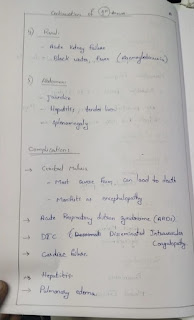 Continuation of
1) Renal:
- Acute Kidney failure
- Black water fever (Haemoglobinuria)
2) Abdomen:
- Jaundice
- Hepatitis, tender liver
- splenomegaly
Complication:
→ Cerebral Malaria
- Most severe form, can lead to death
- Manifests as encephalopathy
→ Acute Respiratory distress syndrome (ARDS)
→ DIC (Disseminated Intravascular
Coagulopathy
→ Cardiac failure
→ Hepatitis
→ Pulmonary edema